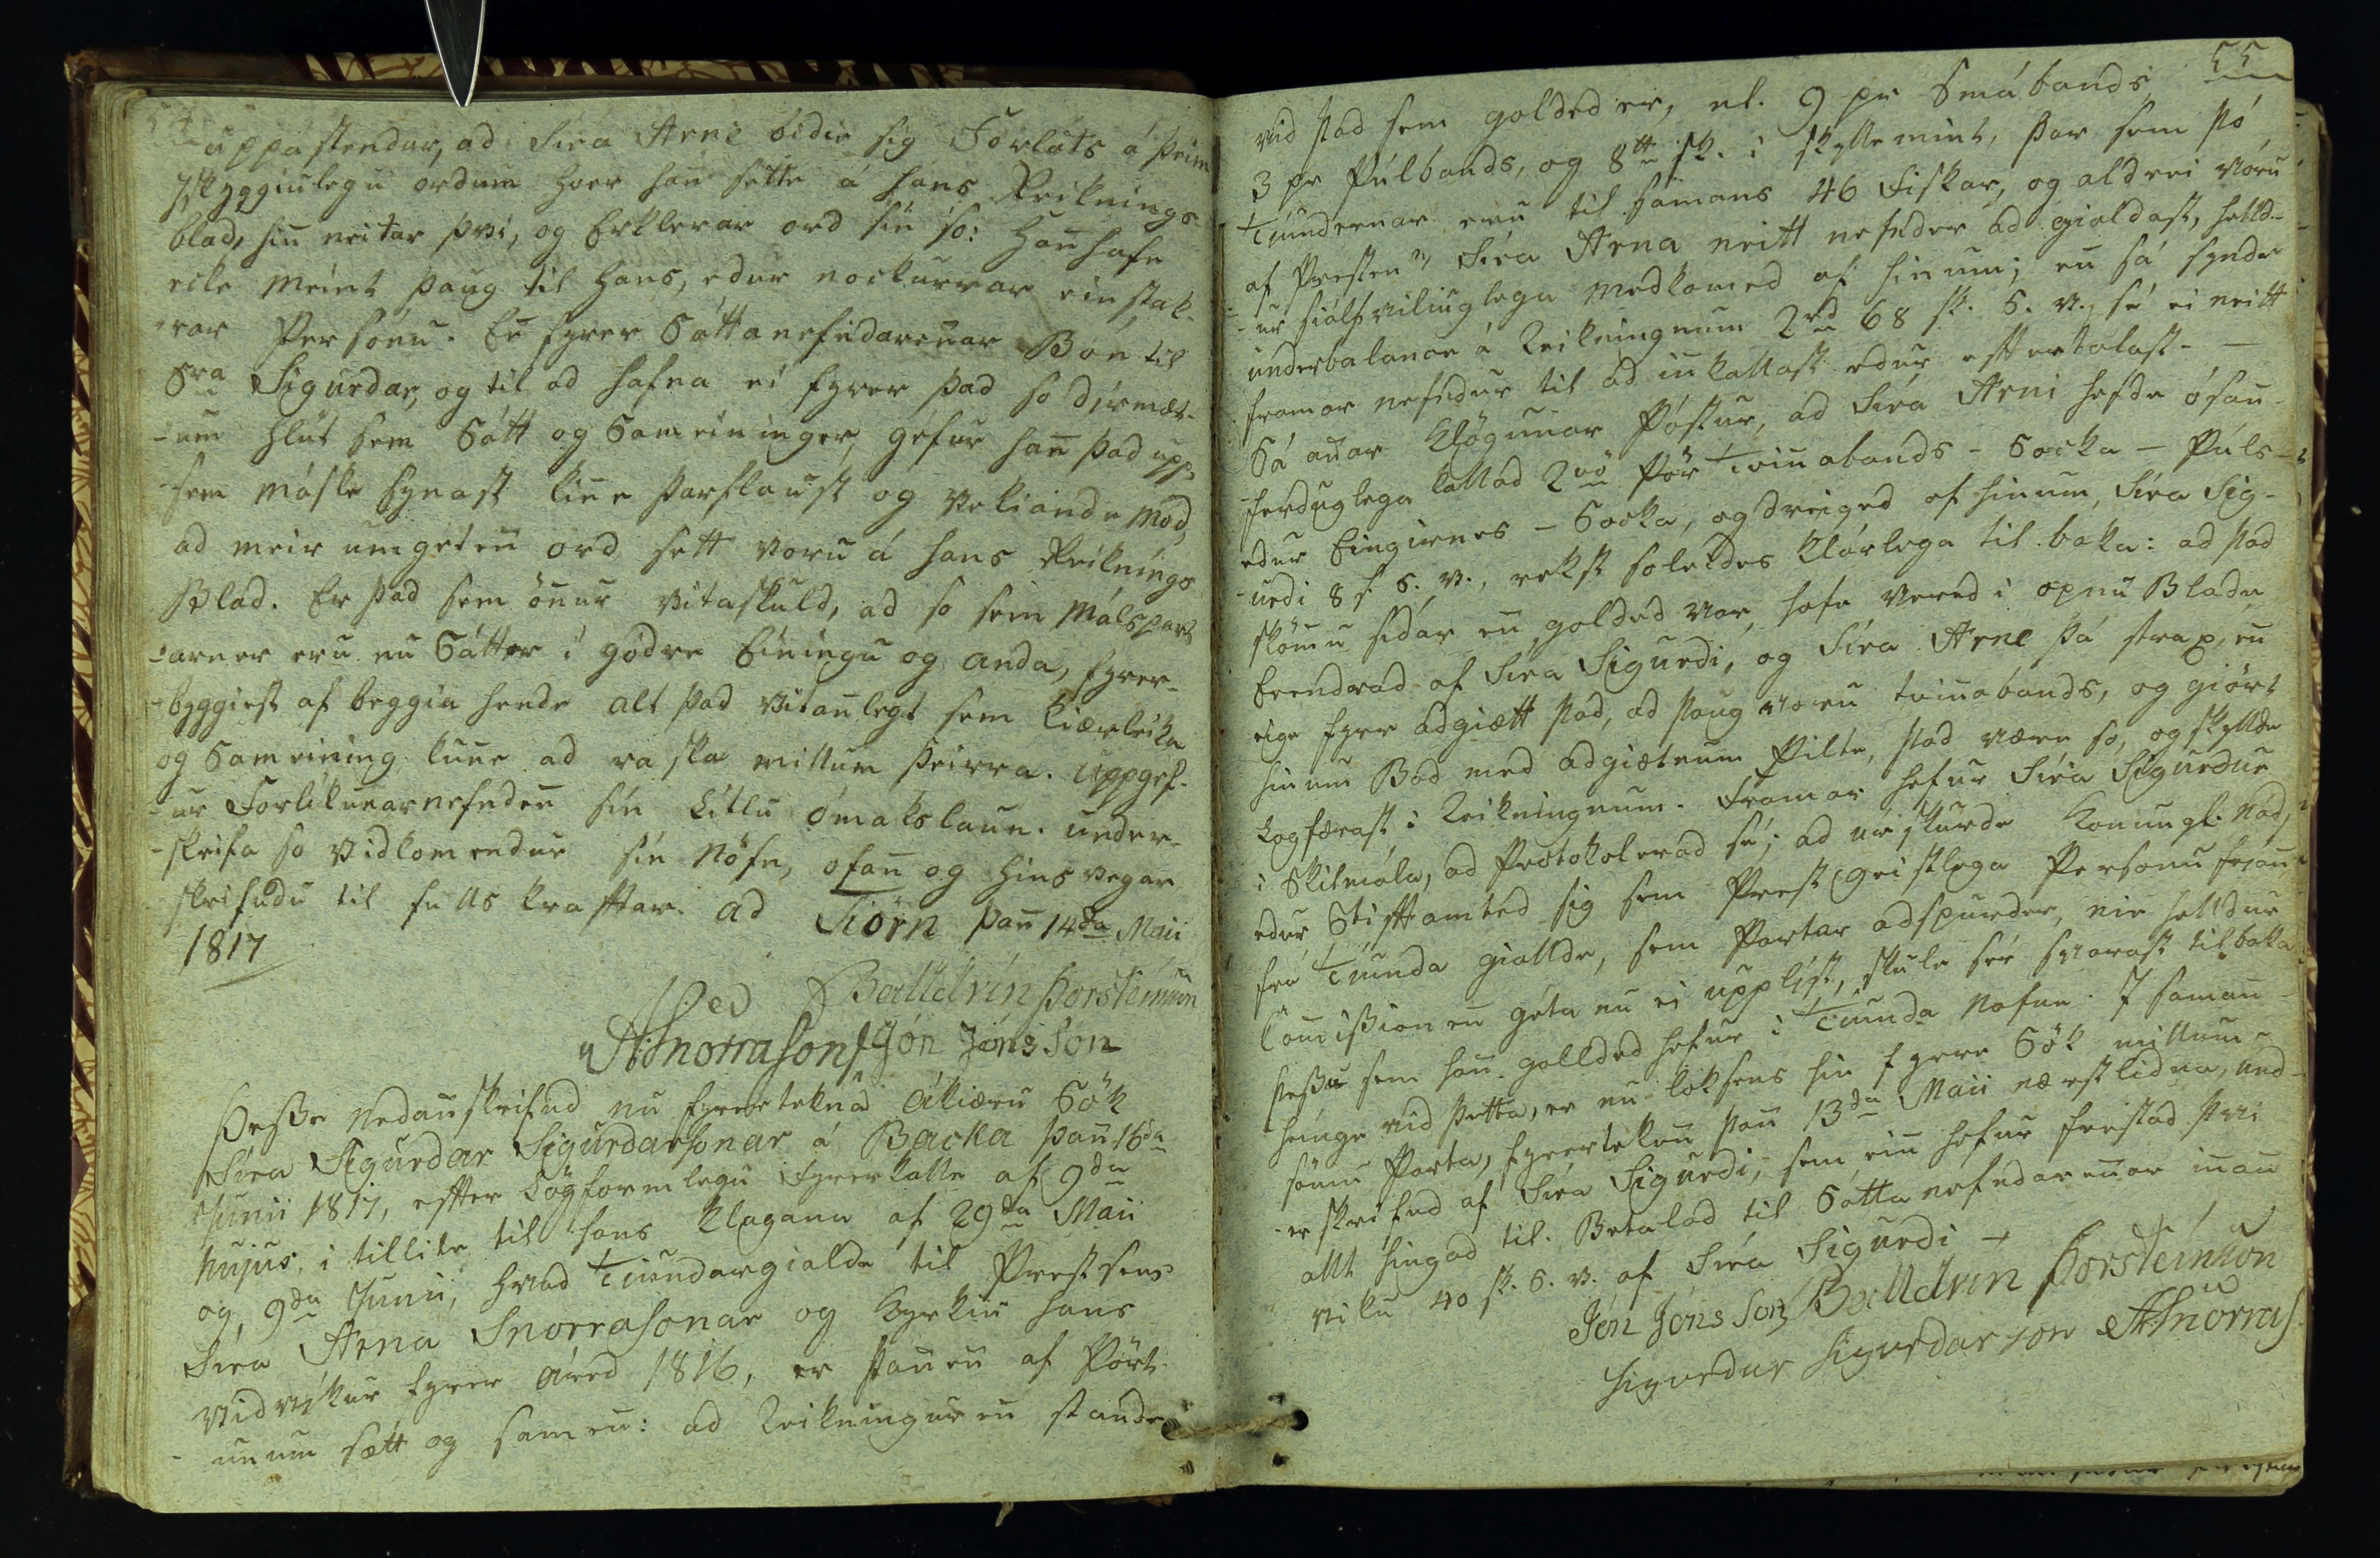 54
uppástendur, ad Síra Arne bidie sig Forláts á þeim
Iskyggiulegu ordum hver han sette á hans Reiknings-
blad, hin neitar þvi, og Erklerar ord sín so: Han hafe
ecke meint þaug til hans, edur nockurrar einstak-
rar Persónu. En fyrer Sáttanefndarennar Bón til
Sra Sigurdar, og til ad hafna ei fyrer þad so dírmæt-
-um hlut sem Sátt og Sameininger, gefur han þad upp,
sem máske synast kune þarflaust og vekiande mód,
ad meir umgeten ord sett voru á hans Reiknings
Blad. Er þad sem önnur vitaskuld, ad so sem Málspart
-arner eru nu Sátter i gódre Einíngu og anda, fyrer-
-byggiest af beggia hende alt þad vitanlegt sem kiærleika
og Sameining kune ad raska millum þeirra. Uppgef-
-ur Forlíkunarnefnden sín Litlu ómakslaun. under-
-skrifa so Vidkomendur sín Nöfn, ofan og hins vegar
skrifudu til fulls kraftar. ad Tiörn þan 14da Maii
1817
Balldvin Þorsteinsson
A. Snorrason Jón Jónsson
Þesse nedanskrifud nu fyrertekna ákiæru Sök
Síra Sigurdar Sigurdarsonar á Backa þan 16da
Junii 1817, effter Lögformlegu Fyrerkalle af 9da
hujus, i tillite til hans klaganer af 29da Maii
og 9da Junii, hvad Tiundargialde til Prestsens
Síra Arna Snorrasonar og Kyrkiu hans
vidvikur fyrer áred 1816, er þanen af Pört-
-unum sætt og samen: ad Reikninguren stande
55
vid þad sem golded er, nl. 9 pr Smábands
3 pr Púlbands, og 8tt sk. i skyllemint, þar sem þó
Tiundernar eru til samans 46 Fiskar, og aldrei vóru
af Presten Síra Arna neitt nefnder ad gialdast, helld-
-ur siálfviliuglega medkomed af hinum; en sá synde
underbalance á Reikningnum 2rd 68 sk. S. V., sé ei neitt
framar nefndur til ad innkallast edur efftertalast. —
Sá anar Klögunar Póstur, ad Síra Arni hefde ósan-
-ferduglega kallad 2vö Pör Tvinabands - Socka - Púls-
edur Eingirnes - Socka, og dreiged af hinum, Síra Sig-
-urdi 8 s. S. V., rekst soleides klárlega til baka: ad þad
skömu sídar en golded var, hafe vered i opnu Blade
Erendrad af Síra Sigurdi, og Síra Arne þá strax, en
eige fyrr adgiætt þad, ad þaug voru tvinabands, og giört
hinum Bod med adgiætnum Pilte, þad være so, og skyllde
Logfærast i Reikningnum. Framar hefur Síra Sigurdur
i Skilmála, ad Protokollerad sé; ad úrskurde Konungl. Nád,
edur Stifftamted sig sem Prest (geistlega Persónu frían
frá Tiunda giallde, sem Partar adspurder, nie helldur
Comissionen géta nu ei upplist, skule sér svarast tilbaka
þessu sem han gollded hefur i Tiunda Nafne. I saman-
heinge vid þetta, er nu loksens hin fyrre Sök millum
sömu Parta, fyrerteken þan 13da Maii næstlidna, und-
-erskrifud af Síra Sigurdi, sem ein hefur frestad því
allt hingad til. Betalad til Sattanefndarennar innan
viku 40 sk. S. V. af Síra Sigurdi
Jón Jónsson Balldvin Þorsteinson
Sigurdur Sigurdarson A. Snorras.